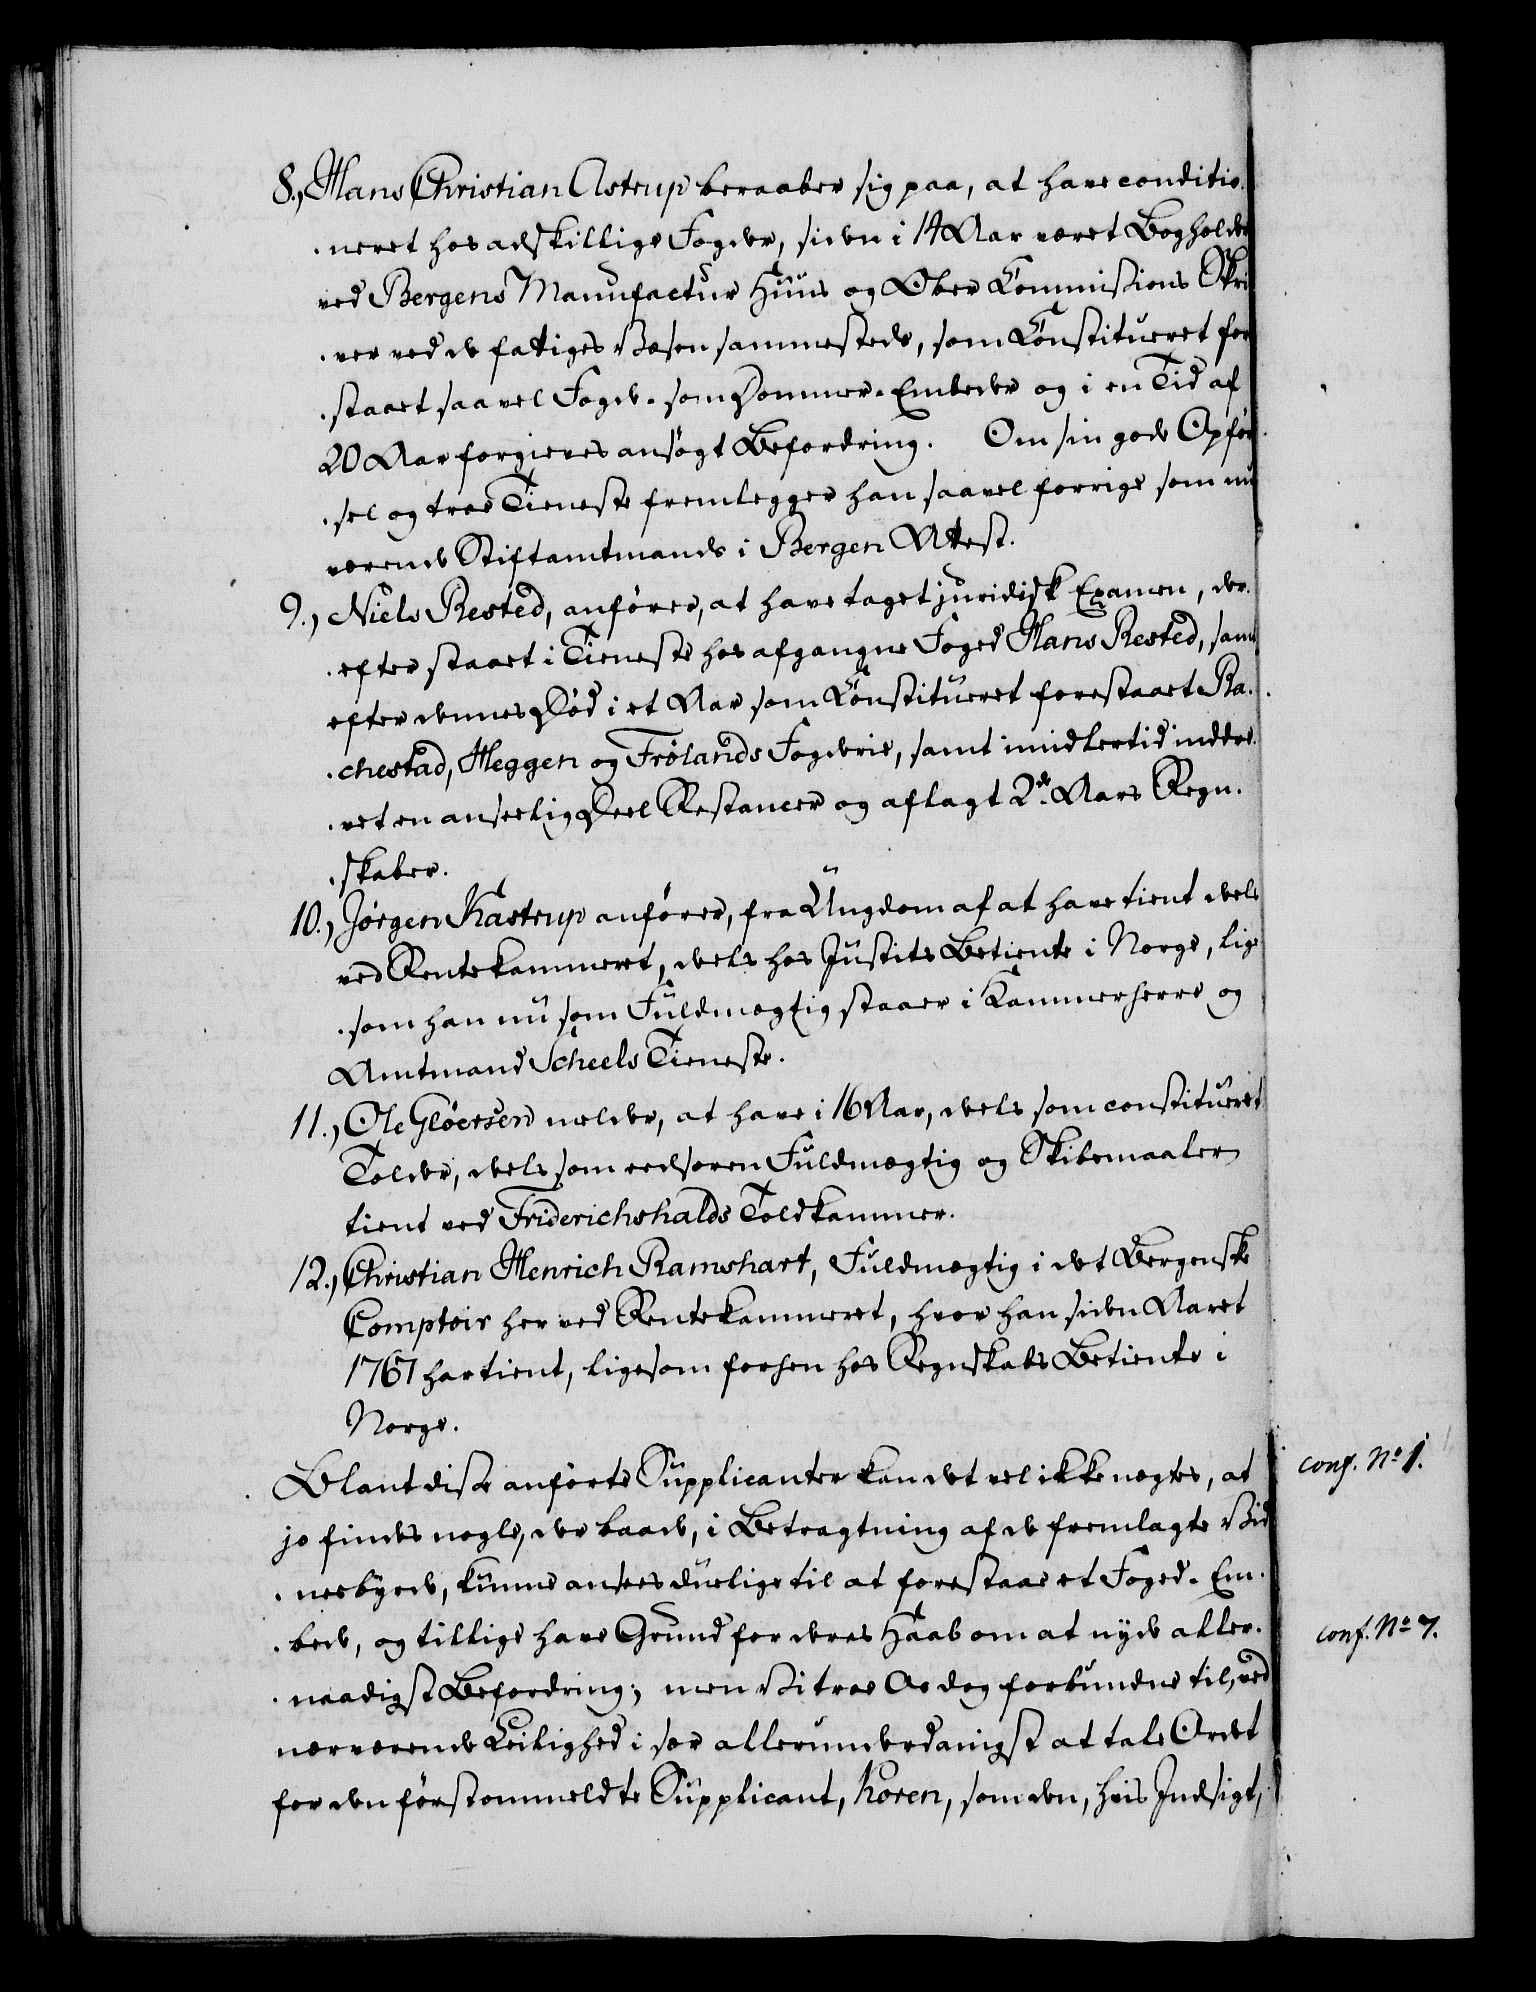 8., Hans Christian Astrup beraaber sig paa, at have conditio-
-neret hos adskillige Fogder, siden i 14 Aar været Bogholder
ved Bergens Manufactur Huus og Ober Commissions Skri
-ver ved de fattiges Væsen sammesteds, som Constitueret for
-staaet saavel Fogde- som Dommer-Embeder og i en Tid af
20 Aar forgieves ansøgt Befordring. Om sin gode Opfør
-sel og troe Tieneste fremlegger han saavel forrige som nu
værende Stiftamtmands i Bergen Attest.
9., Niels Rested, anfører, at have taget juridisk Examen, der-
-efter staaet i Tieneste hos afgangne Foged Hans Rested, samt
efter dennes Død i et Aar som Constitueret forestaaet Ra-
-chestad, Heggen og Frølands Fogderie, samt imidlertid inddre-
-vet en anseelig Deel Restancer og aflagt 2de Aars Regn-
-skaber.
10., Jørgen Kastrup anfører, fra Ungdom af at have tient deels
ved Rentekammeret, deels hos Justits Betiente i Norge, lige
-som han nu som Fuldmægtig staaer i Kammerherre og
Amtmand Scheels Tieneste.
11., Ole Gløersen melder, at have i 16 Aar, deels som constitueret
Tolder, deels som eedsoren Fuldmægtig og Skibsmaaler
tient ved Friderichshalds Toldkammer.
12., Christian Henrich Ramshart, Fuldmægtig i det Bergenske
Comptoir her ved Rentekammeret, hvor han siden Aaret
1767 har tient, ligesom forhen hos Regnskabs Betiente i
Norge.
Blant disse anførte Supplicanter kan det vel ikke nægtes, at
conf. No 1.
jo findes nogle, der baade, i Betragtning af de fremlagte Vid
-nesbyrd, kunne ansees duelige til at forestaae et Foged-Em-
-bede, og tillige have Grund for deres Haab om at nyde aller-
conf. No 7.
-naadigst Befordring; men Vi troe Os dog forbundne til, ved
nærværende Leilighed i sær allerunderdanigst at tale Ordet
for den førstommeldte Supplicant, Koren, som den, hvis Indsigt,